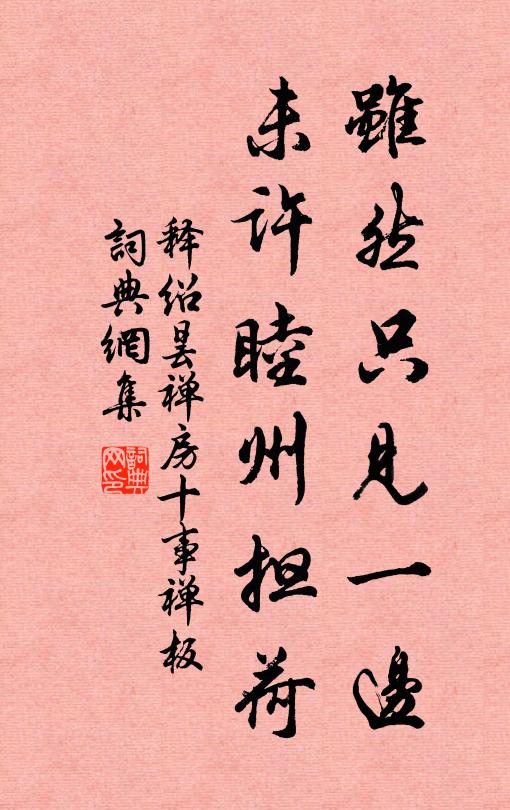 雖然只見一邊
未许睦州担荷
释绍昙禅房十事禅板
詞典網集
詞典网印